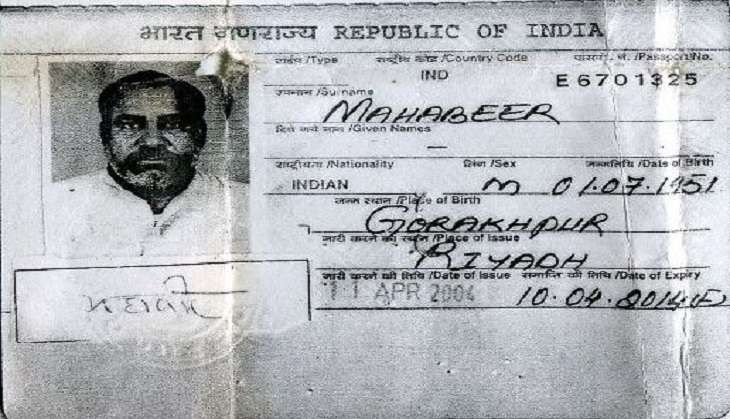 भारत गणराज्य REPUBLIC OF INDIA
टाईप /Type राष्ट्रीय कोड /Country Code पासपोर्ट नं. /Passport No.
IND E 6701325
उपनाम /Surname
MAHABEER
दिये गये नाम /Given Names
—
राष्ट्रीयता /Nationality लिंग /Sex जन्मतिथि /Date of Birth
INDIAN M 01.07.1951
जन्म स्थान /Place of Birth
GORAKHPUR
जारी करने का स्थान /Place of Issue
RIYADH
जारी करने की तिथि /Date of Issue समाप्ति की तिथि /Date of Expiry
11 APR 2004 10.04.2014
महावीर